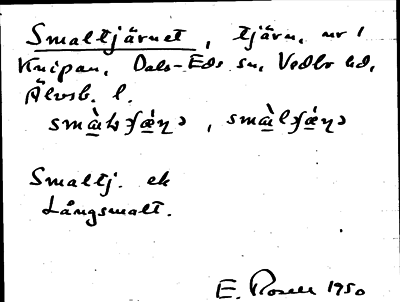 Smaltjärnet, tjärn, nr 1
Knipan, Dals-Eds sn, Vedbo hd,
Älvsb. l.
Smaltj. ek
Långsmalt.
E. Rosell 1950